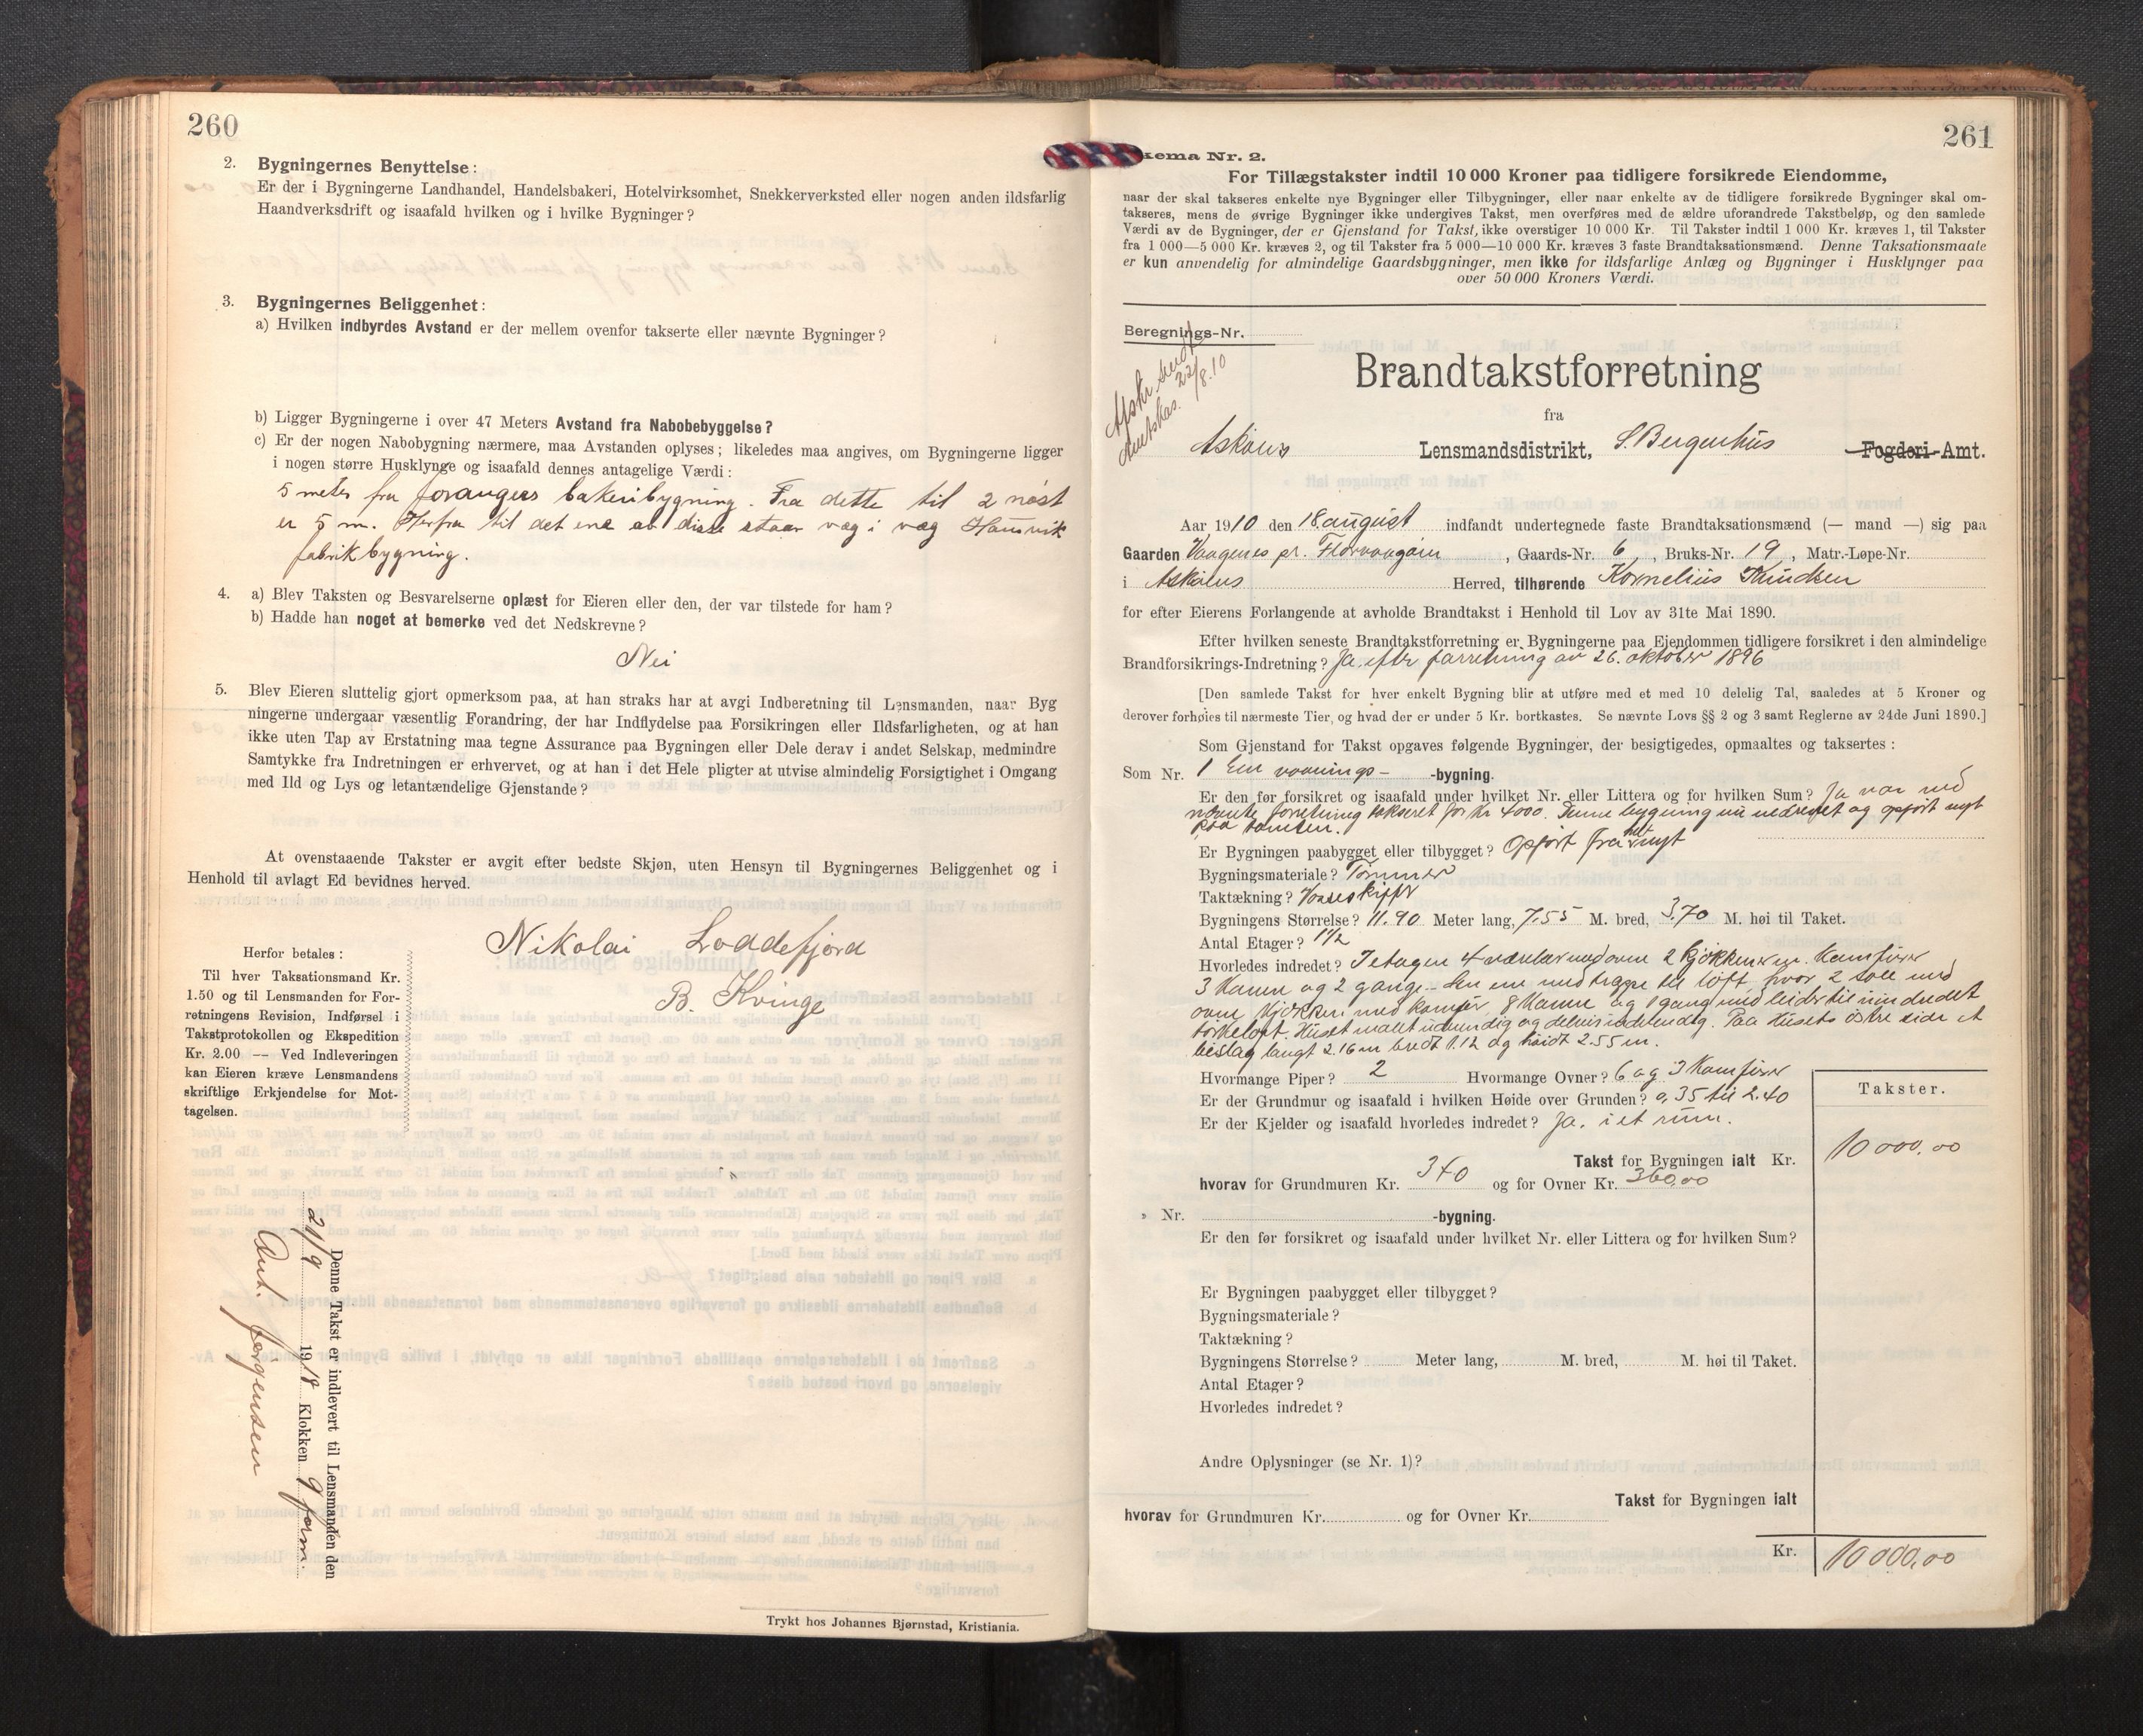 260
2. Bygningernes Benyttelse:
Er der i Bygningerne Landhandel, Handelsbakeri, Hotelvirksomhet, Snekkerverksted eller nogen anden ildsfarlig
Haandverksdrift og isaafald hvilken og i hvilke Bygninger?
3. Bygningernes Beliggenhet:
a) Hvilken indbyrdes Avstand er der mellem ovenfor takserte eller nævnte Bygninger?
b) Ligger Bygningerne i over 47 Meters Avstand fra Nabobebyggelse?
c) Er der nogen Nabobygning nærmere, maa Avstanden oplyses; likeledes maa angives, om Bygningerne ligger
i nogen større Husklynge og isaafald dennes antagelige Værdi:
5 meter fra bakeribygning. Fra dette til 2 nøst
er 5 m. Herfra til det ene ab disse staar væg i væg Hausvik
fabrikbygning.
4. a) Blev Taksten og Besvarelserne oplæst for Eieren eller den, der var tilstede for ham?
b) Hadde han noget at bemerke ved det Nedskrevne?
Nei
5. Blev Eieren sluttelig gjort opmerksom paa, at han straks har at avgi Indberetning til Lensmanden, naar Byg
ningerne undergaar væsentlig Forandring, der har Indflydelse paa Forsikringen eller Ildsfarligheten, og at han
ikke uten Tap av Erstatning maa tegne Assurance paa Bygningen eller Dele derav i andet Selskap, medmindre
Samtykke fra Indretningen er erhvervet, og at han i det Hele pligter at utvise almindelig Forsigtighet i Omgang
med Ild og Lys og letantændelige Gjenstande?
At ovenstaaende Takster er avgit efter bedste Skjøn, uten Hensyn til Bygningernes Beliggenhet og i
Henhold til avlagt Ed bevidnes herved.
Nikolai Loddefjord
B. Kvinge
Herfor betales:
Til hver Taksationsmand Kr.
1.50 og til Lensmanden for For-
retningens Revision, Indførsel i
Takstprotokollen og Ekspedition
Kr. 2.00 — Ved Indleveringen
kan Eieren kræve Lensmandens
skriftlige Erkjendelse for Mot-
tagelsen.
Denne Takst er indlevert til Lensmanden den
21/9 1918 Klokken 9 form.
Ant. Jørgensen
Trykt hos Johannes Bjørnstad, Kristiania.
261
kema Nr. 2.
For Tillægstakster indtil 10 000 Kroner paa tidligere forsikrede Eiendomme,
naar der skal takseres enkelte nye Bygninger eller Tilbygninger, eller naar enkelte av de tidligere forsikrede Bygninger skal om-
takseres, mens de øvrige Bygninger ikke undergives Takst, men overføres med de ældre uforandrede Takstbeløp, og den samlede
Værdi av de Bygninger, der er Gjenstand for Takst, ikke overstiger 10 000 Kr. Til Takster indtil 1 000 Kr. kræves 1, til Takster
fra 1 000—5 000 Kr. kræves 2, og til Takster fra 5 000—10 000 Kr. kræves 3 faste Brandtaksationsmænd. Denne Taksationsmaate
er kun anvendelig for almindelige Gaardsbygninger, men ikke for ildsfarlige Anlæg og Bygninger i Husklynger paa
over 50 000 Kroners Værdi.
Beregnings-Nr.
Afskr. sendt
22/8.10
Brandtakstforretning
fra
Askøens Lensmandsdistrikt, S. Bergenhus Fogderi-Amt.
Aar 1910 den 18 august indfandt undertegnede faste Brandtaksationsmænd (— mand —) sig paa
Gaarden Vaagenes pr. Florvaagøen, Gaards-Nr. 6, Bruks-Nr. 19, Matr.-Løpe-Nr.
i Askøens Herred, tilhørende Kornelius Knudsen
for efter Eierens Forlangende at avholde Brandtakst i Henhold til Lov av 31te Mai 1890.
Efter hvilken seneste Brandtakstforretning er Bygningerne paa Ejendommen tidligere forsikret i den almindelige
Brandforsikrings-Indretning? Ja. efter forretning av 26. oktober 1896
[Den samlede Takst for hver enkelt Bygning blir at utføre med et med 10 delelig Tal, saaledes at 5 Kroner og
derover forhøies til nærmeste Tier, og hvad der er under 5 Kr. bortkastes. Se nævnte Lovs §§ 2 og 3 samt Reglerne av 24de Juni 1890.]
Som Gjenstand for Takst opgaves følgende Bygninger, der besigtigedes, opmaaltes og taksertes:
Som Nr. 1 Een vaanings- -bygning.
Er den før forsikret og isaafald under hvilket Nr. eller Littera og for hvilken Sum? Ja var ved
nævnte forretning takseret for Kr 4000. Denne bygning nu nedrevet og opført nyt
paa tomten.
Er Bygningen paabygget eller tilbygget? Opført fra nyt
Bygningsmateriale? Tømmer
Taktækning? Vosseskiffer
Bygningens Størrelse? 11.90 Meter lang, 7.55 M. bred, 3.70 M. høi til Taket.
Antal Etager? 1½
Hvorledes indredet? I etagen 4 værelser med ovne 2 kjøkkener m. Komfyrer
3 Kamre og 2 gange. Den ene med trappe til loft, hvor 2 med
ovne Kjøkken med komfyr, 8 Kamre og 1 gang med leider til uindredet
tørkeloft. Huset malet udvendig og delvis indvendig. Paa Husets østre side et
beslag langt 2.16 m bredt 1.12 og høidt 2.55 m.
Hvormange Piper? 2 Hvormange Ovner? 6 og 3 Komfyrer
Er der Grundmur og isaafald i hvilken Høide over Grunden? 0,35 til 2.40
Er der Kjelder og isaafald hvorledes indredet? Ja. i et rum.
Takster.
Takst for Bygningen ialt Kr. 10 000,00
hvorav for Grundmuren Kr. 340 og for Ovner Kr. 360,00
» Nr. -bygning.
Er den før forsikret og isaafald under hvilket Nr. eller Littera og for hvilken Sum?
Er Bygningen paabygget eller tilbygget?
Bygningsmateriale?
Taktækning?
Bygningens Størrelse? Meter lang, M. bred, M. høi til Taket.
Antal Etager?
Hvorledes indredet?
Andre Oplysninger (se Nr. 1)?
Takst for Bygningen ialt
hvorav for Grundmuren Kr. og for Ovner Kr.
Kr. 10 000,00